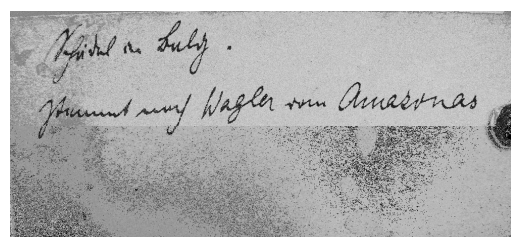 Schädel in Balg.
stammt nach Wagler vom Amazonas